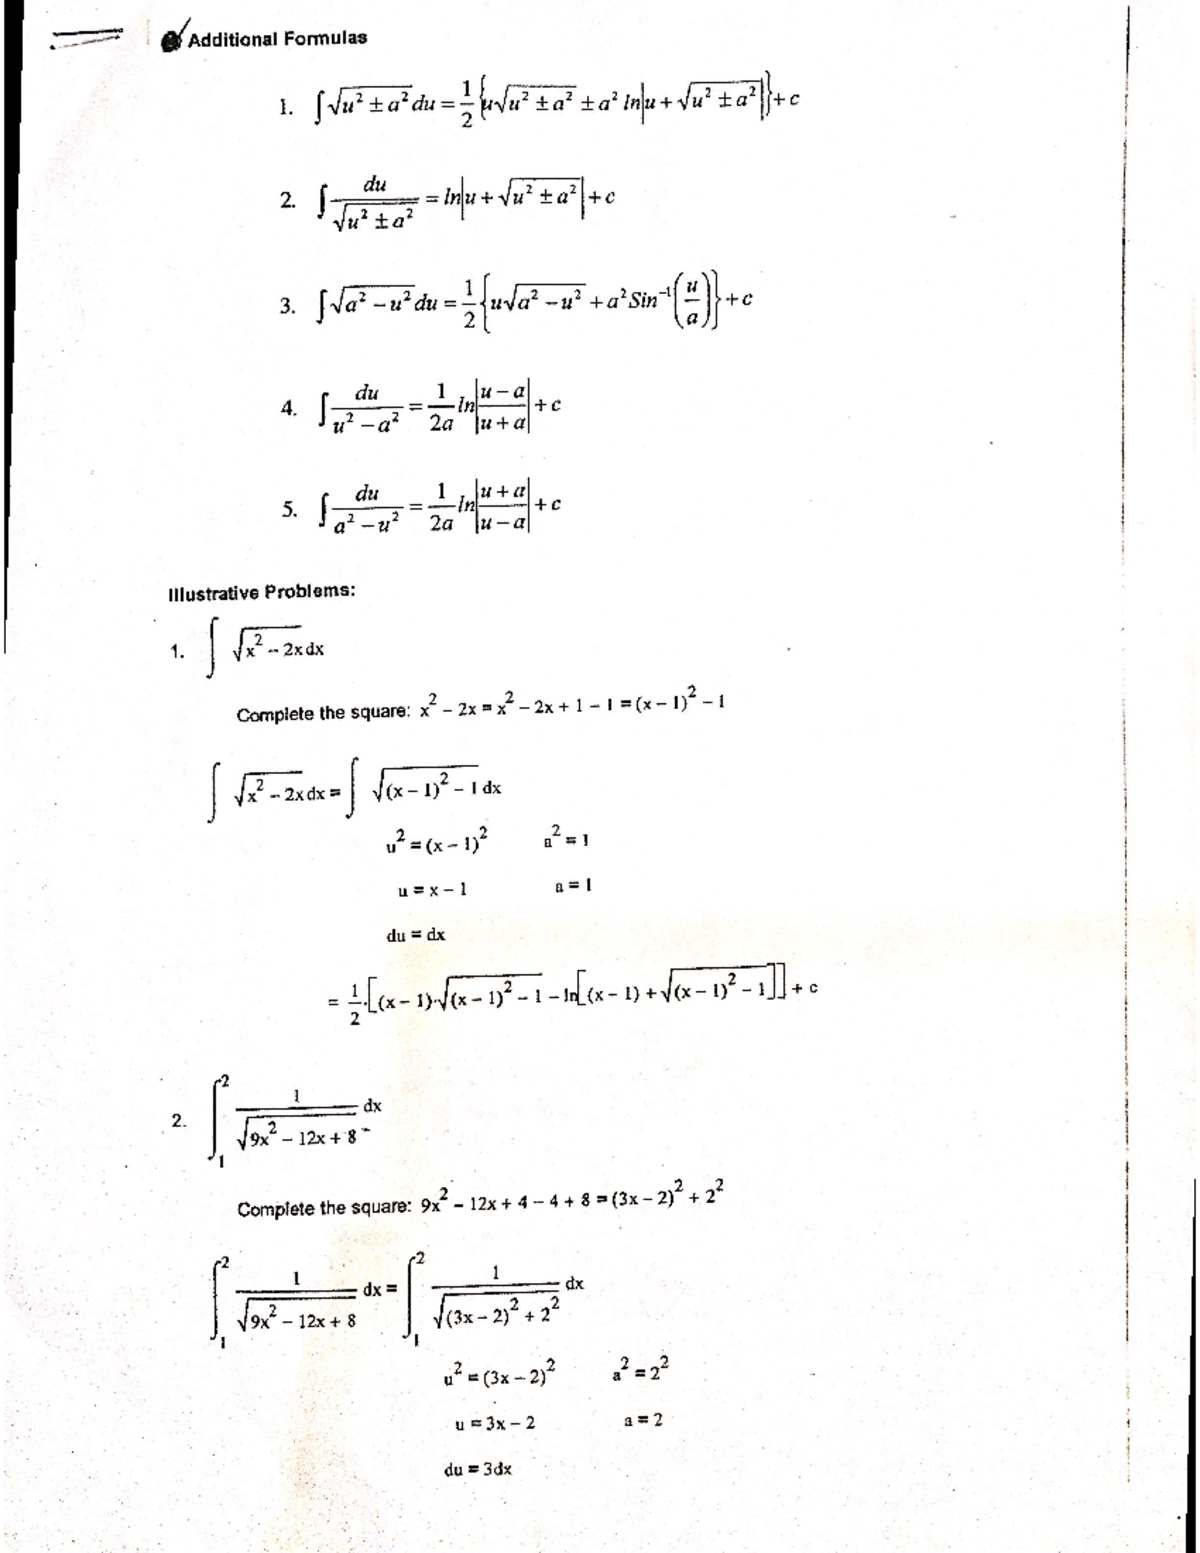 Additional Formulas
1. ∫√(u² ± a²) du = 1/2 {u√(u² ± a²) ± a² ln|u + √(u² ± a²)|} + c
2. ∫ du/√(u² ± a²) = ln|u + √(u² ± a²)| + c
3. ∫√(a² − u²) du = 1/2 {u√(a² − u²) + a² Sin⁻¹(u/a)} + c
4. ∫ du/(u² − a²) = 1/(2a) ln|(u − a)/(u + a)| + c
5. ∫ du/(a² − u²) = 1/(2a) ln|(u + a)/(u − a)| + c
Illustrative Problems:
1. ∫ √(x² − 2x) dx
Complete the square: x² − 2x = x² − 2x + 1 − 1 = (x − 1)² − 1
∫ √(x² − 2x) dx = ∫ √((x − 1)² − 1) dx
u² = (x − 1)² a² = 1
u = x − 1 a = 1
du = dx
= 1/2·[(x − 1)·√((x − 1)² − 1) − ln[(x − 1) + √((x − 1)² − 1)]] + c
2. ∫₁² 1/√(9x² − 12x + 8) dx
Complete the square: 9x² − 12x + 4 − 4 + 8 = (3x − 2)² + 2²
∫₁² 1/√(9x² − 12x + 8) dx = ∫₁² 1/√((3x − 2)² + 2²) dx
u² = (3x − 2)² a² = 2²
u = 3x − 2 a = 2
du = 3dx